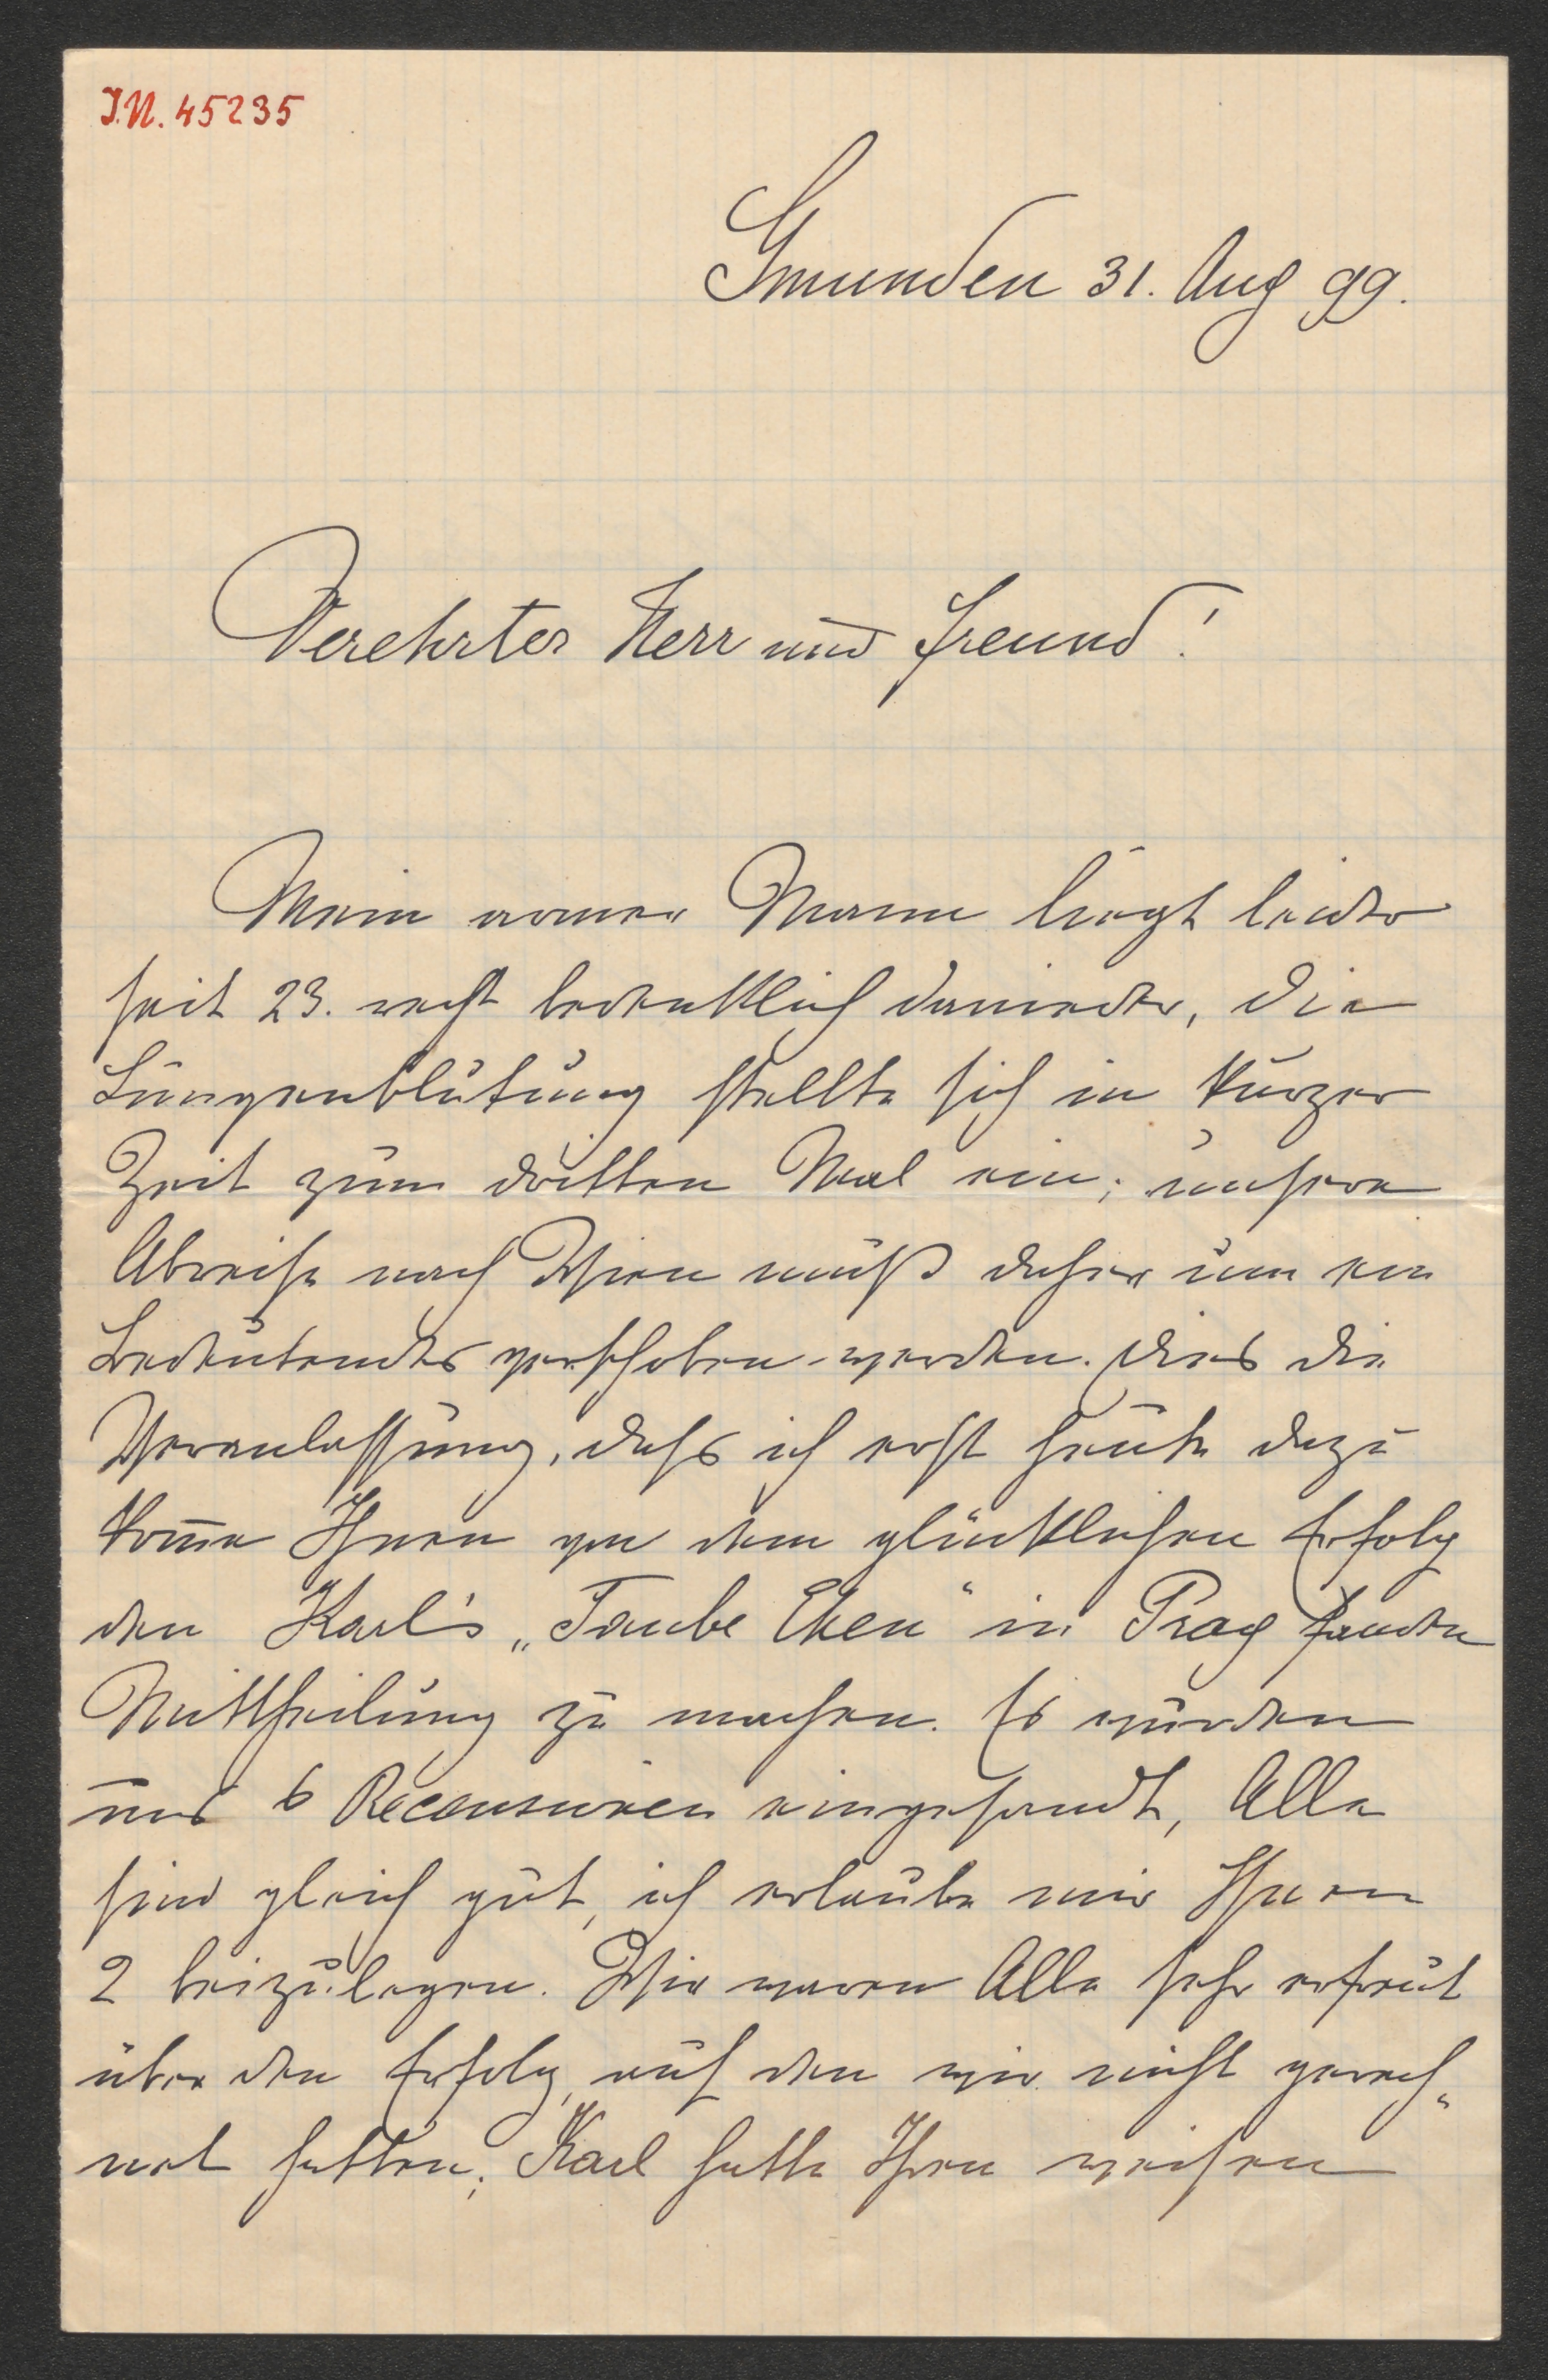 J.N. 45235
Gmunden 31. Aug 99.
Verehrter Herr und Freund!
Mein armer Mann liegt leider
seit 23. recht bedenklich darnieder, die
Lungenblutung stellte sich in kurzer
Zeit zum dritten Mal ein; unsere
Abreise nach Wien muß daher um ein
Bedeutendes verschoben werden. Dies die
Veranlassung, dass ich erst heute dazu
kom̅e Ihnen von dem glücklichen Erfolg
den Karl's „Taube Eken" in Prag fanden
Mittheilung zu machen. Es wurden
uns 6 Recensionen eingesandt, Alle
sind gleich gut, ich erlaube mir Ihnen
2 beizulegen. Wir waren Alle sehr erfreut
über den Erfolg, auf den wir nicht gerech„
net hatten; Karl hatte Ihren weisen